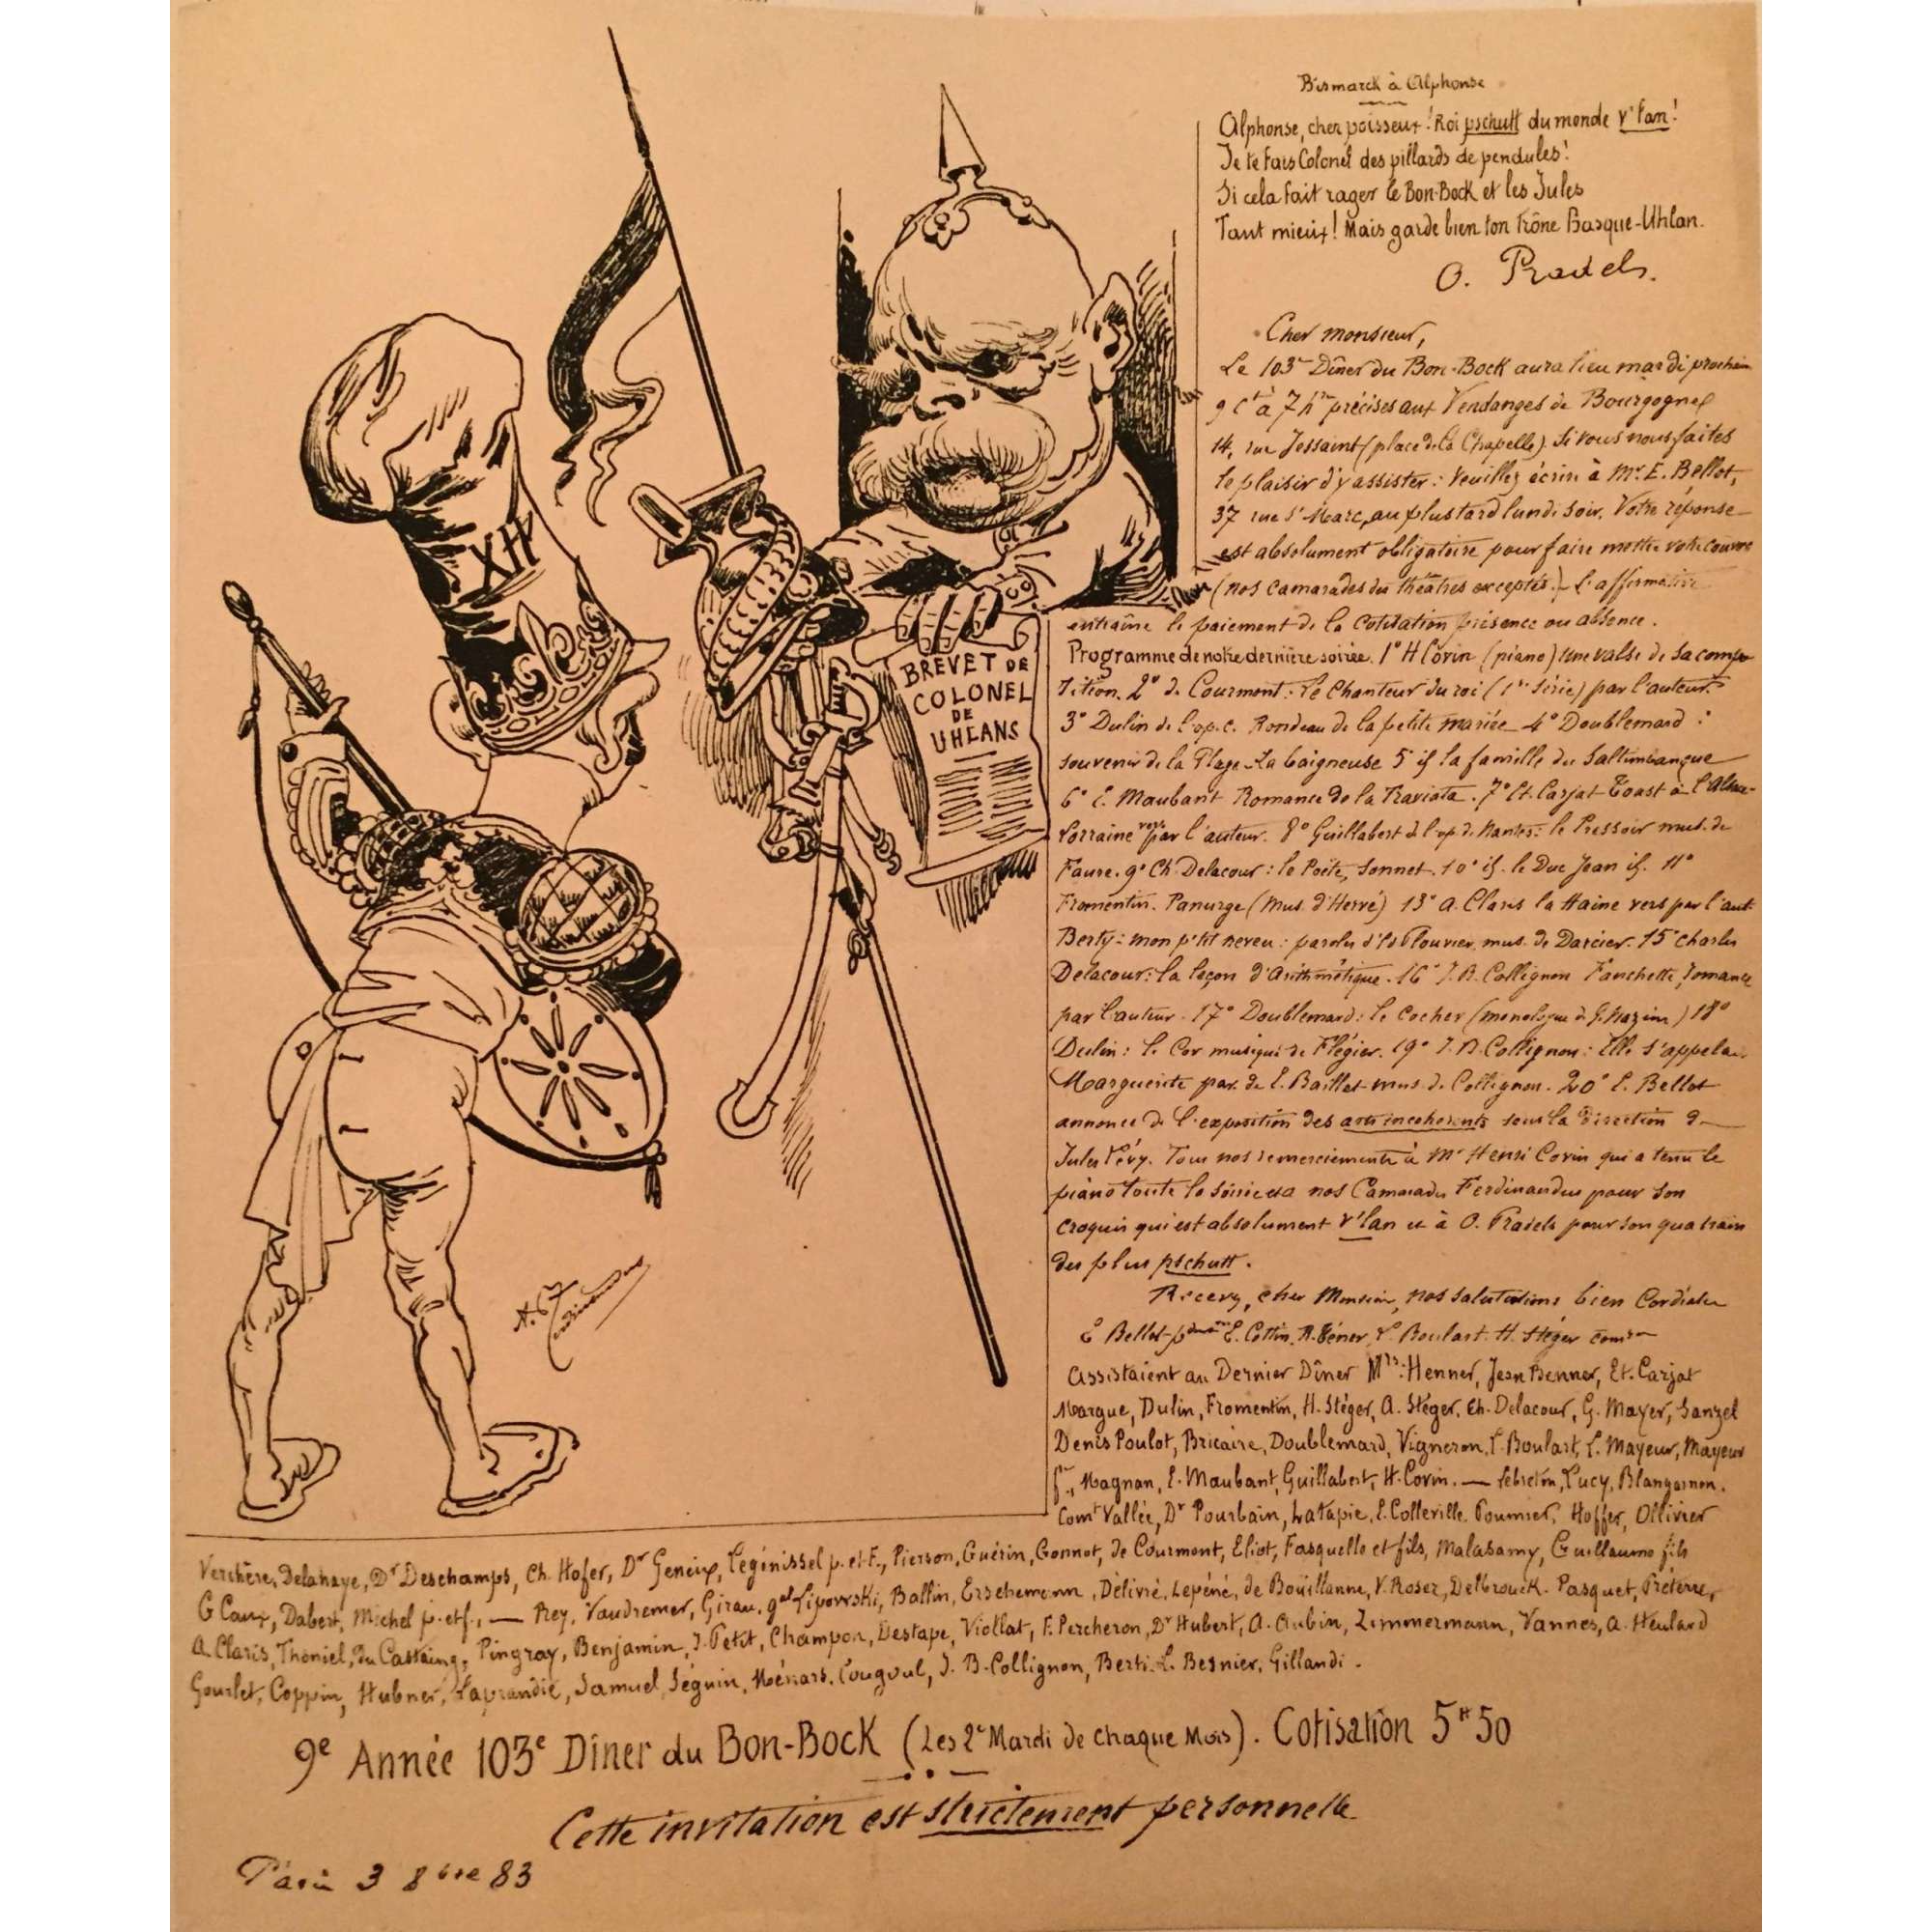 Bismarck à Alphonse
Alphonse, cher poisseux ! Roi pschutt du monde v'lan !
Je te fais Colonel des pillards de pendules !
Si cela fait rager le Bon-Bock et les Jules
Tant mieux ! Mais garde bien ton trône Basque-Uhlan.
O. Pradels.
Cher monsieur,
Le 103e Dîner du Bon-Bock aura lieu mardi prochain
9 ct à 7 hres précises aux Vendanges de Bourgogne
14, rue Jessaint (place de la Chapelle). Si vous nous faites
le plaisir d'y assister : veuillez écrire à Mr. E. Bellot,
37 rue St Marc, au plus tard lundi soir. Votre réponse
est absolument obligatoire pour faire mettre votre couvert
(nos camarades des théatres exceptés.) L'affirmative
entraîne le paiement de la cotisation présence ou absence.
Programme de notre dernière soirée. 1° H Corin (piano) une valse de sa compo-
sition. 2° de Courmont : le Chanteur du roi (1re série) par l'auteur.
3° Dulin de l'op. c. Rondeau de la petite mariée 4° Doublemard :
souvenir de la Plage - La baigneuse 5° id la famille du Saltimbanque
6° E. Maubant Romance de la Traviata. 7° Et. Carjat Toast à l'Alsace-
Lorraine vers par l'auteur. 8° Guillabert de l'op. de Nantes : le Pressoir mus. de
Faure. 9° Ch. Delacour : le Poëte, sonnet. 10° id. le Duc Jean id. 11°
Fromentin. Panurge (mus. d'Hervé) 13° A. Claris la Haine vers par l'aut.
Berty : mon p'tit neveu : paroles d'Ed Plouvier, mus. de Darcier. 15° Charles
Delacour : la leçon d'Arithmétique. 16° J. B. Collignon Fanchette, romance
par l'auteur. 17° Doublemard : le Cocher (monologue de G. Nazim) 18°
Dulin : le Cor musique de Flégier. 19° J. B. Collignon : Elle s'appela.
Marguerite par. de E. Baillet mus. de Collignon. 20° E. Bellot
annonce de l'exposition des arts incohérents sous la direction de
Jules Lévy. Tous nos remerciements à Mr Henri Corin qui a tenu le
piano toute la soirée et à nos Camarades Ferdinandus pour son
croquis qui est absolument v'lan et à O. Pradels pour son quatrain
des plus pschutt.
Recevez, cher Monsieur, nos salutations bien Cordiales
E Bellot E. Cottin, A. Féner, L. Boulart. H. Stéger
Assistaient au Dernier Dîner Mrs : Henner, Jean Benner, Et. Carjat
Margue, Dulin, Fromentin, H. Stéger, A. Stéger, Ch. Delacour, G. Mayer, Sanzel
Denis Poulot, Bricaire, Doublemard, Vigneron, L. Boulart, L. Mayeur, Mayeur
fr., Magnan, E. Maubant, Guillabert, H. Corin. — Lebreton, Lucy, Blangarnon.
Comt Vallée, Dr Pourbain, Latapie, E. Colleville. Poumier, Hoffer, Ollivier
Verchère, Delahaye, Dr Deschamps, Ch. Hofer, Dr Geneix, Legénissel p. et F., Pierson, Guérin, Gonnot, de Courmont, Eliot, Fasquelle et fils, Malasamy, Guillaume fils
G Caux, Dabert, Michel p. et f., — Rey, Vaudremer, Girau, gal Lipowski, Ballin, Erschemann, Délivré, Lepéné, de Boüillanne, V. Roser, Delbrouck. Pasquet, Préterre,
A. Claris, Thoniel, du Castaing, Pingray, Benjamin, J. Petit, Champon, Destape, Viollat, F. Percheron, Dr Hubert, A. Aubin, Zimmermann, Vannes, A. Heulard
Gourlet, Coppin, Hubner, Laprandie, Samuel, Séguin, Ménars, Cougoul, J. B. Collignon, Berti. L. Besnier, Gillandi.
9e Année 103e Dîner du Bon-Bock (Les 2e Mardi de chaque Mois). Cotisation 5 fr 50
Cette invitation est strictement personnelle
Paris 3 8bre 83
XII
BREVET DE
COLONEL
DE
UHLANS
A. Ferdinandus